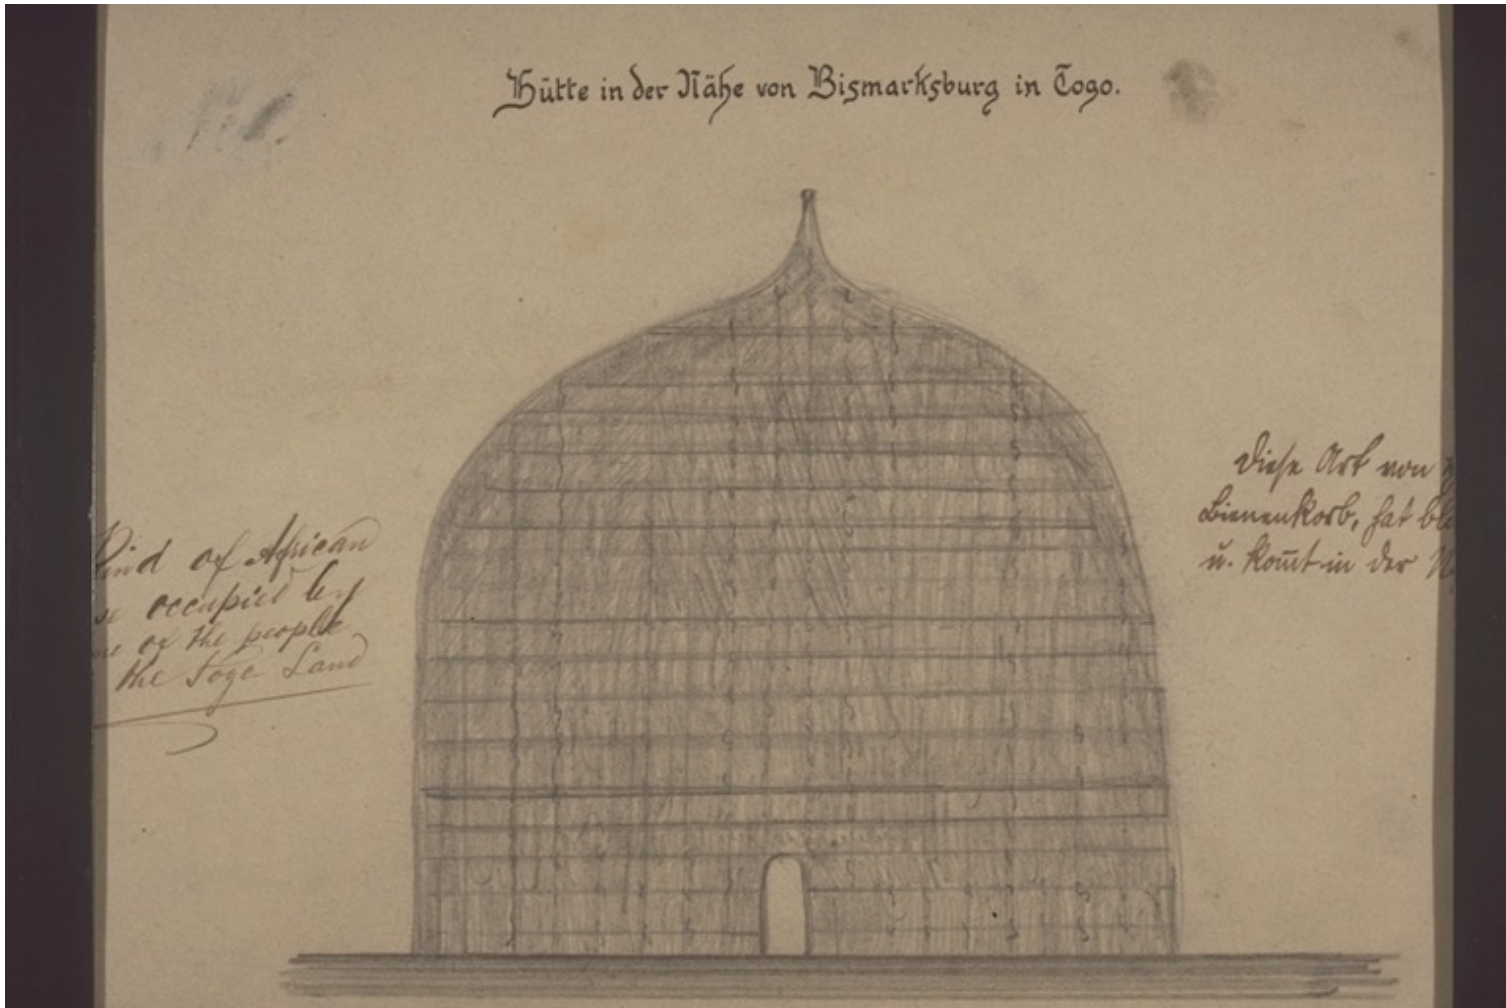 Hütte in der Nähe von Bismarksburg in Togo.
Kind of African
occupied by
of the people
the Togo Land
Diese Art von
Bienenkorb, hat
u. kom̅t in der